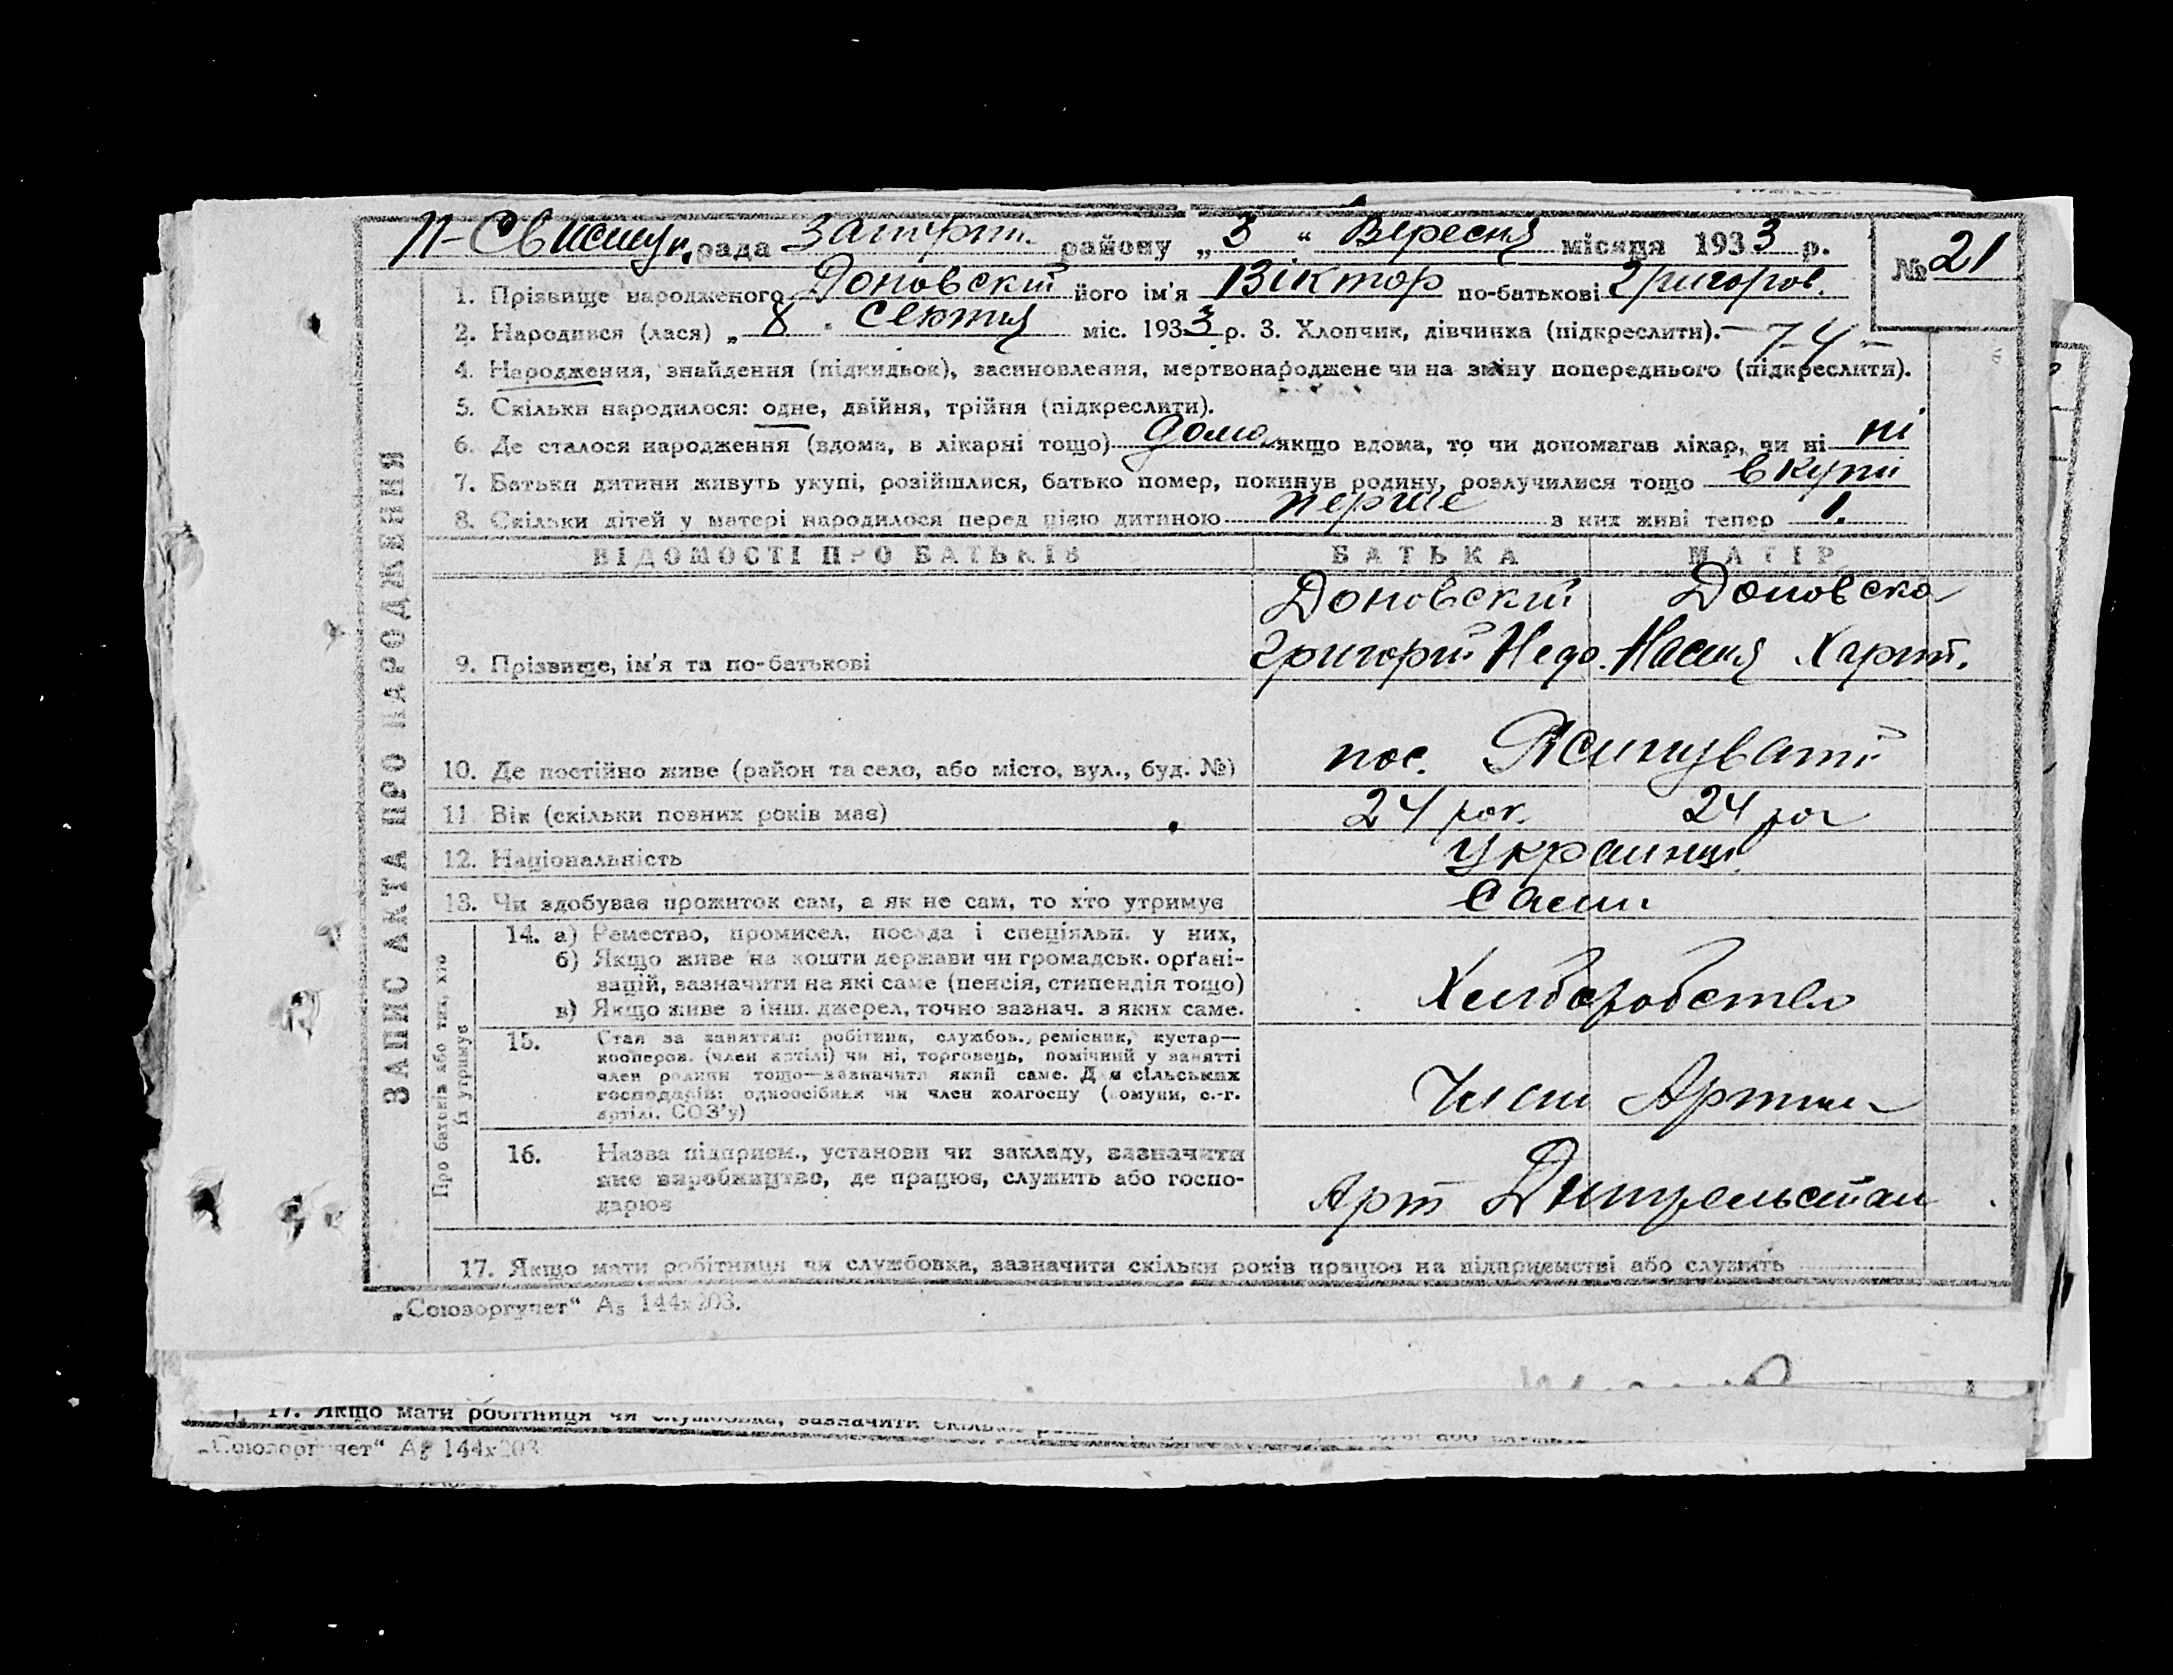 П-Свистун. рада Запоріт. району „ 3 “ Вересня місяця 1933 р.
№ 21
1. Прізвище народженого Доновский його ім'я Віктор по-батькові Григоров.
2. Народився (лася) „ 8 " міс. 1933 р. 3. Хлопчик, дівчинка (підкреслити). — 7-4 —
4. Народження, знайдення (підкидьок), засиновлення, мертвонароджене чи на зміну попереднього (підкреслити).
5. Скільки народилося: одне, двійня, трійня (підкреслити).
6. Де сталося народження (вдома, в лікарні тощо) дома якщо вдома, то чи допомагав лікар, чи ні ні
7. Батьки дитини живуть укупі, розійшлися, батько помер, покинув родину, розлучилися тощо вкупі
8. Скільки дітей у матері народилося перед цією дитиною перше з них живі тепер 1.
ЗАПИС АКТА ПРО НАРОДЖЕННЯ
ВІДОМОСТІ ПРО БАТЬКІВ БАТЬКА МАТІР
Доновский Доновска
9. Прізвище, ім'я та по-батькові Григорий Недо. Настя Харит.
10. Де постійно живе (район та село, або місто, вул., буд. №) пос. Ясинуватий
11. Вік (скільки повних років має) 24 рок. 24 рок
12. Національність Украинці
13. Чи здобуває прожиток сам, а як не сам, то хто утримує сами
Про батьків або тих, хто
їх утримує
14. а) Ремество, промисел, посада і спеціяльн. у них,
б) Якщо живе на кошти держави чи громадськ. орґані-
зацій, зазначити на які саме (пенсія, стипендія тощо)
в) Якщо живе з інш. джерел, точно зазнач. з яких саме.
Хлиборобство
15. Стан за заняттям: робітник, службов., ремісник, кустар—
кооперов. (член артілі) чи ні, торговець, помічний у занятті
член родини тощо—зазначити який саме. Для сільських
господарів: одноосібник чи член колгоспу (комуни, с.-г.
артілі, СОЗ'у)
Члени Артили
16. Назва підприєм., установи чи закладу, зазначити
яке виробництво, де працює, служить або госпо-
дарює
Арт Днипрельстан
17. Якщо мати робітниця чи службовка, зазначити скільки років працює на підприємстві або служить
„Союзоргучет“ А₅ 144х203.
17. Якщо мати робітниця чи службовка, зазначити
„Союзоргучет“ А₅ 144х203